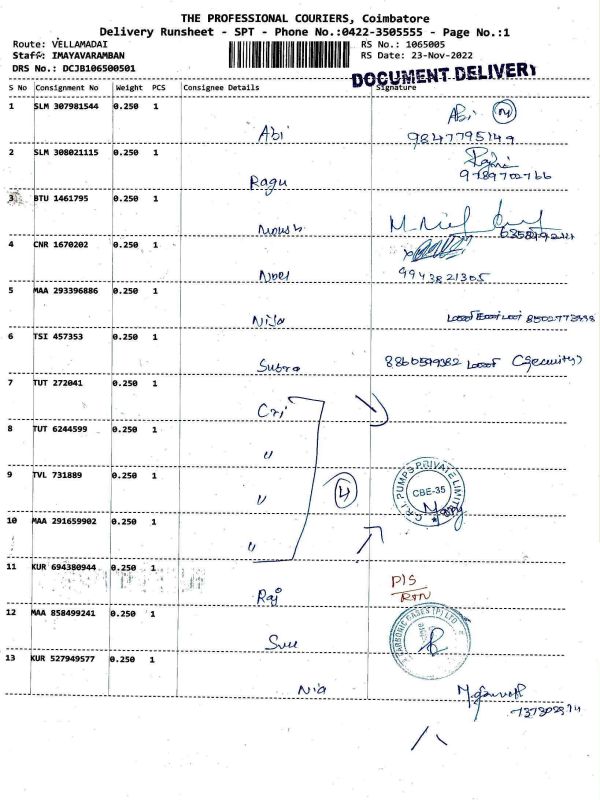 THE PROFESSIONAL COURIERS, Coimbatore
Delivery Runsheet - SPT - Phone No.:0422-3505555 - Page No.:1
Route: VELLAMADAI
Staff: IMAYAVARAMBAN
DRS No.: DCJB106500501
RS No.: 1065005
RS Date: 23-Nov-2022
DOCUMENT DELIVERY
S No Consignment No Weight PCS Consignee Details Signature
1 SLM 307981544 0.250 1
Abi Abi
9847795149
2 SLM 308021115 0.250 1
Ragu
9789702766
3 BTU 1461795 0.250 1
4 CNR 1670202 0.250 1
Noel 9943821305
5 MAA 293396886 0.250 1
Nija
6 TSI 457353 0.250 1
Subra (Security)
7 TUT 272041 0.250 1
Cri
8 TUT 6244599 0.250 1
"
9 TVL 731889 0.250 1
" 4
C.R.I. PUMPS PRIVATE LIMITED
CBE-35
10 MAA 291659902 0.250 1
"
11 KUR 694380944 0.250 1
Raj
RTN
12 MAA 858499241 0.250 1
13 KUR 527949577 0.250 1
Nia